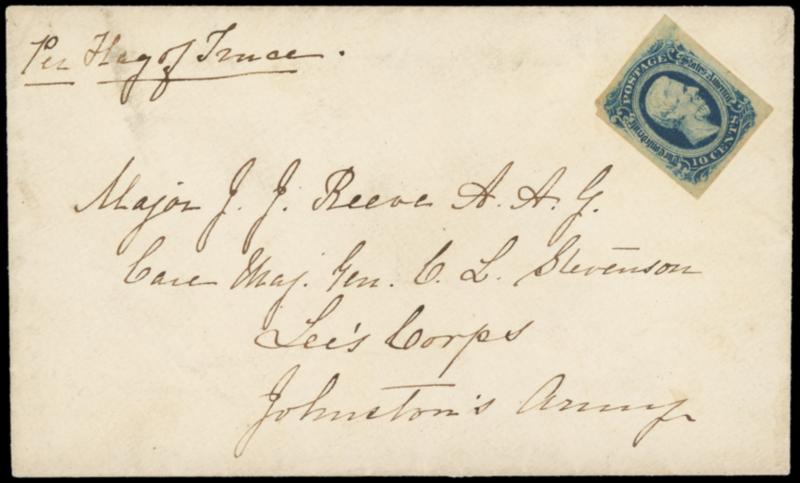 Per Flag of Truce.
POSTAGE
10 CENTS
Major J. J. Reeve A. A. G.
Care Maj. Gen. C. L. Stevenson
Lee's Corps
Johnston's Army